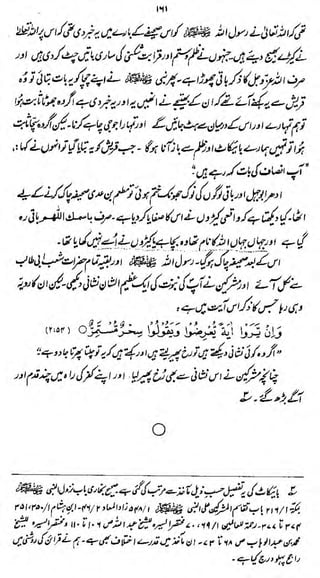 ۱۶۱
تھی کہ اللہ تعالیٰ نے رسول اللہ ﷺ کو اس صحیفے کے بارے میں یہ خبر دی تھی کہ اس پر اللہ تعالیٰ
نے کیڑے بھیج دیئے ہیں۔ جنہوں نے ظلم و ستم اور قرابت شکنی کی ساری باتیں چٹ کر دی ہیں اور
صرف اللہ عزوجل کا ذکر باقی چھوڑا ہے۔ پھر نبی ﷺ نے اپنے چچا کو یہ بات بتائی تو وہ
قریش سے یہ کہنے آئے تھے کہ ان کے بھتیجے نے انھیں یہ اور یہ خبر دی ہے اگر وہ جھوٹا ثابت ہوا
تو ہم تمہارے اور اس کے درمیان سے ہٹ جائیں گے اور تمہارا جو جی چاہے کرنا۔ لیکن اگر وہ سچا ثابت
ہوا تو تمہیں ہمارے بائیکاٹ اور ظلم سے باز آنا ہوگا۔ جب قریش کو یہ بتایا گیا تو انھوں نے کہا:
”آپ انصاف کی بات کہہ رہے ہیں۔“
ادھر ابوجہل اور باقی لوگوں کی نوک جھونک ختم ہوئی تو مطعم بن عدی صحیفہ چاک کرنے کے لیے
اٹھا۔ کیا دیکھتا ہے کہ واقعی کیڑوں نے اس کا صفایا کر دیا ہے۔ صرف باسمك اللهم باقی رہ
گیا ہے اور جہاں جہاں اللہ کا نام تھا وہ بچا ہے کیڑوں نے اُسے نہیں کھایا تھا۔
اس کے بعد صحیفہ چاک ہوگیا۔ رسول اللہ ﷺ اور بقیہ تمام حضرات شعب ابی طالب
سے نکل آئے اور مشرکین نے آپ کی نبوت کی ایک عظیم الشان نشانی دیکھی۔ لیکن ان کا رویہ
وہی رہا جس کا ذکر اس آیت میں ہے:
وَاِنْ يَّرَوْا اٰيَةً يُّعْرِضُوْا وَيَقُوْلُوْا سِحْرٌ مُّسْتَمِرٌّ ○ (۲:۵۴)
”اگر وہ کوئی نشانی دیکھتے ہیں تو رخ پھیر لیتے ہیں اور کہتے ہیں کہ یہ تو چلتا پھرتا جادو ہے“
چنانچہ مشرکین نے اس نشانی سے بھی رُخ پھیر لیا اور اپنے کفر کی راہ میں چند قدم اور
آگے بڑھ گئے۔
بائیکاٹ کی یہ تفصیل حسب ذیل مآخذ سے مرتب کی گئی ہے۔ صحیح بخاری باب نزول النبی ﷺ
بمکۃ ۱/۲۱۶ باب تقاسم المشرکین علی النبی ﷺ ۱/۵۴۸ زاد المعاد ۲/۴۶۔ ابن ہشام ۱/۳۵۰، ۳۵۱
۳۷۴ تا ۳۷۷۔ رحمۃ للعالمین ۱/۶۹، ۷۰ مختصر السیرہ للشیخ عبد اللہ ص ۱۰۶ تا ۱۱۰ و مختصر السیرہ للشیخ
محمد بن عبد الوہاب ص ۶۸ تا ۷۳۔ ان مآخذ میں قدرے اختلاف بھی ہے۔ ہم نے قرائن کی روشنی میں
راجح پہلو درج کیا ہے۔